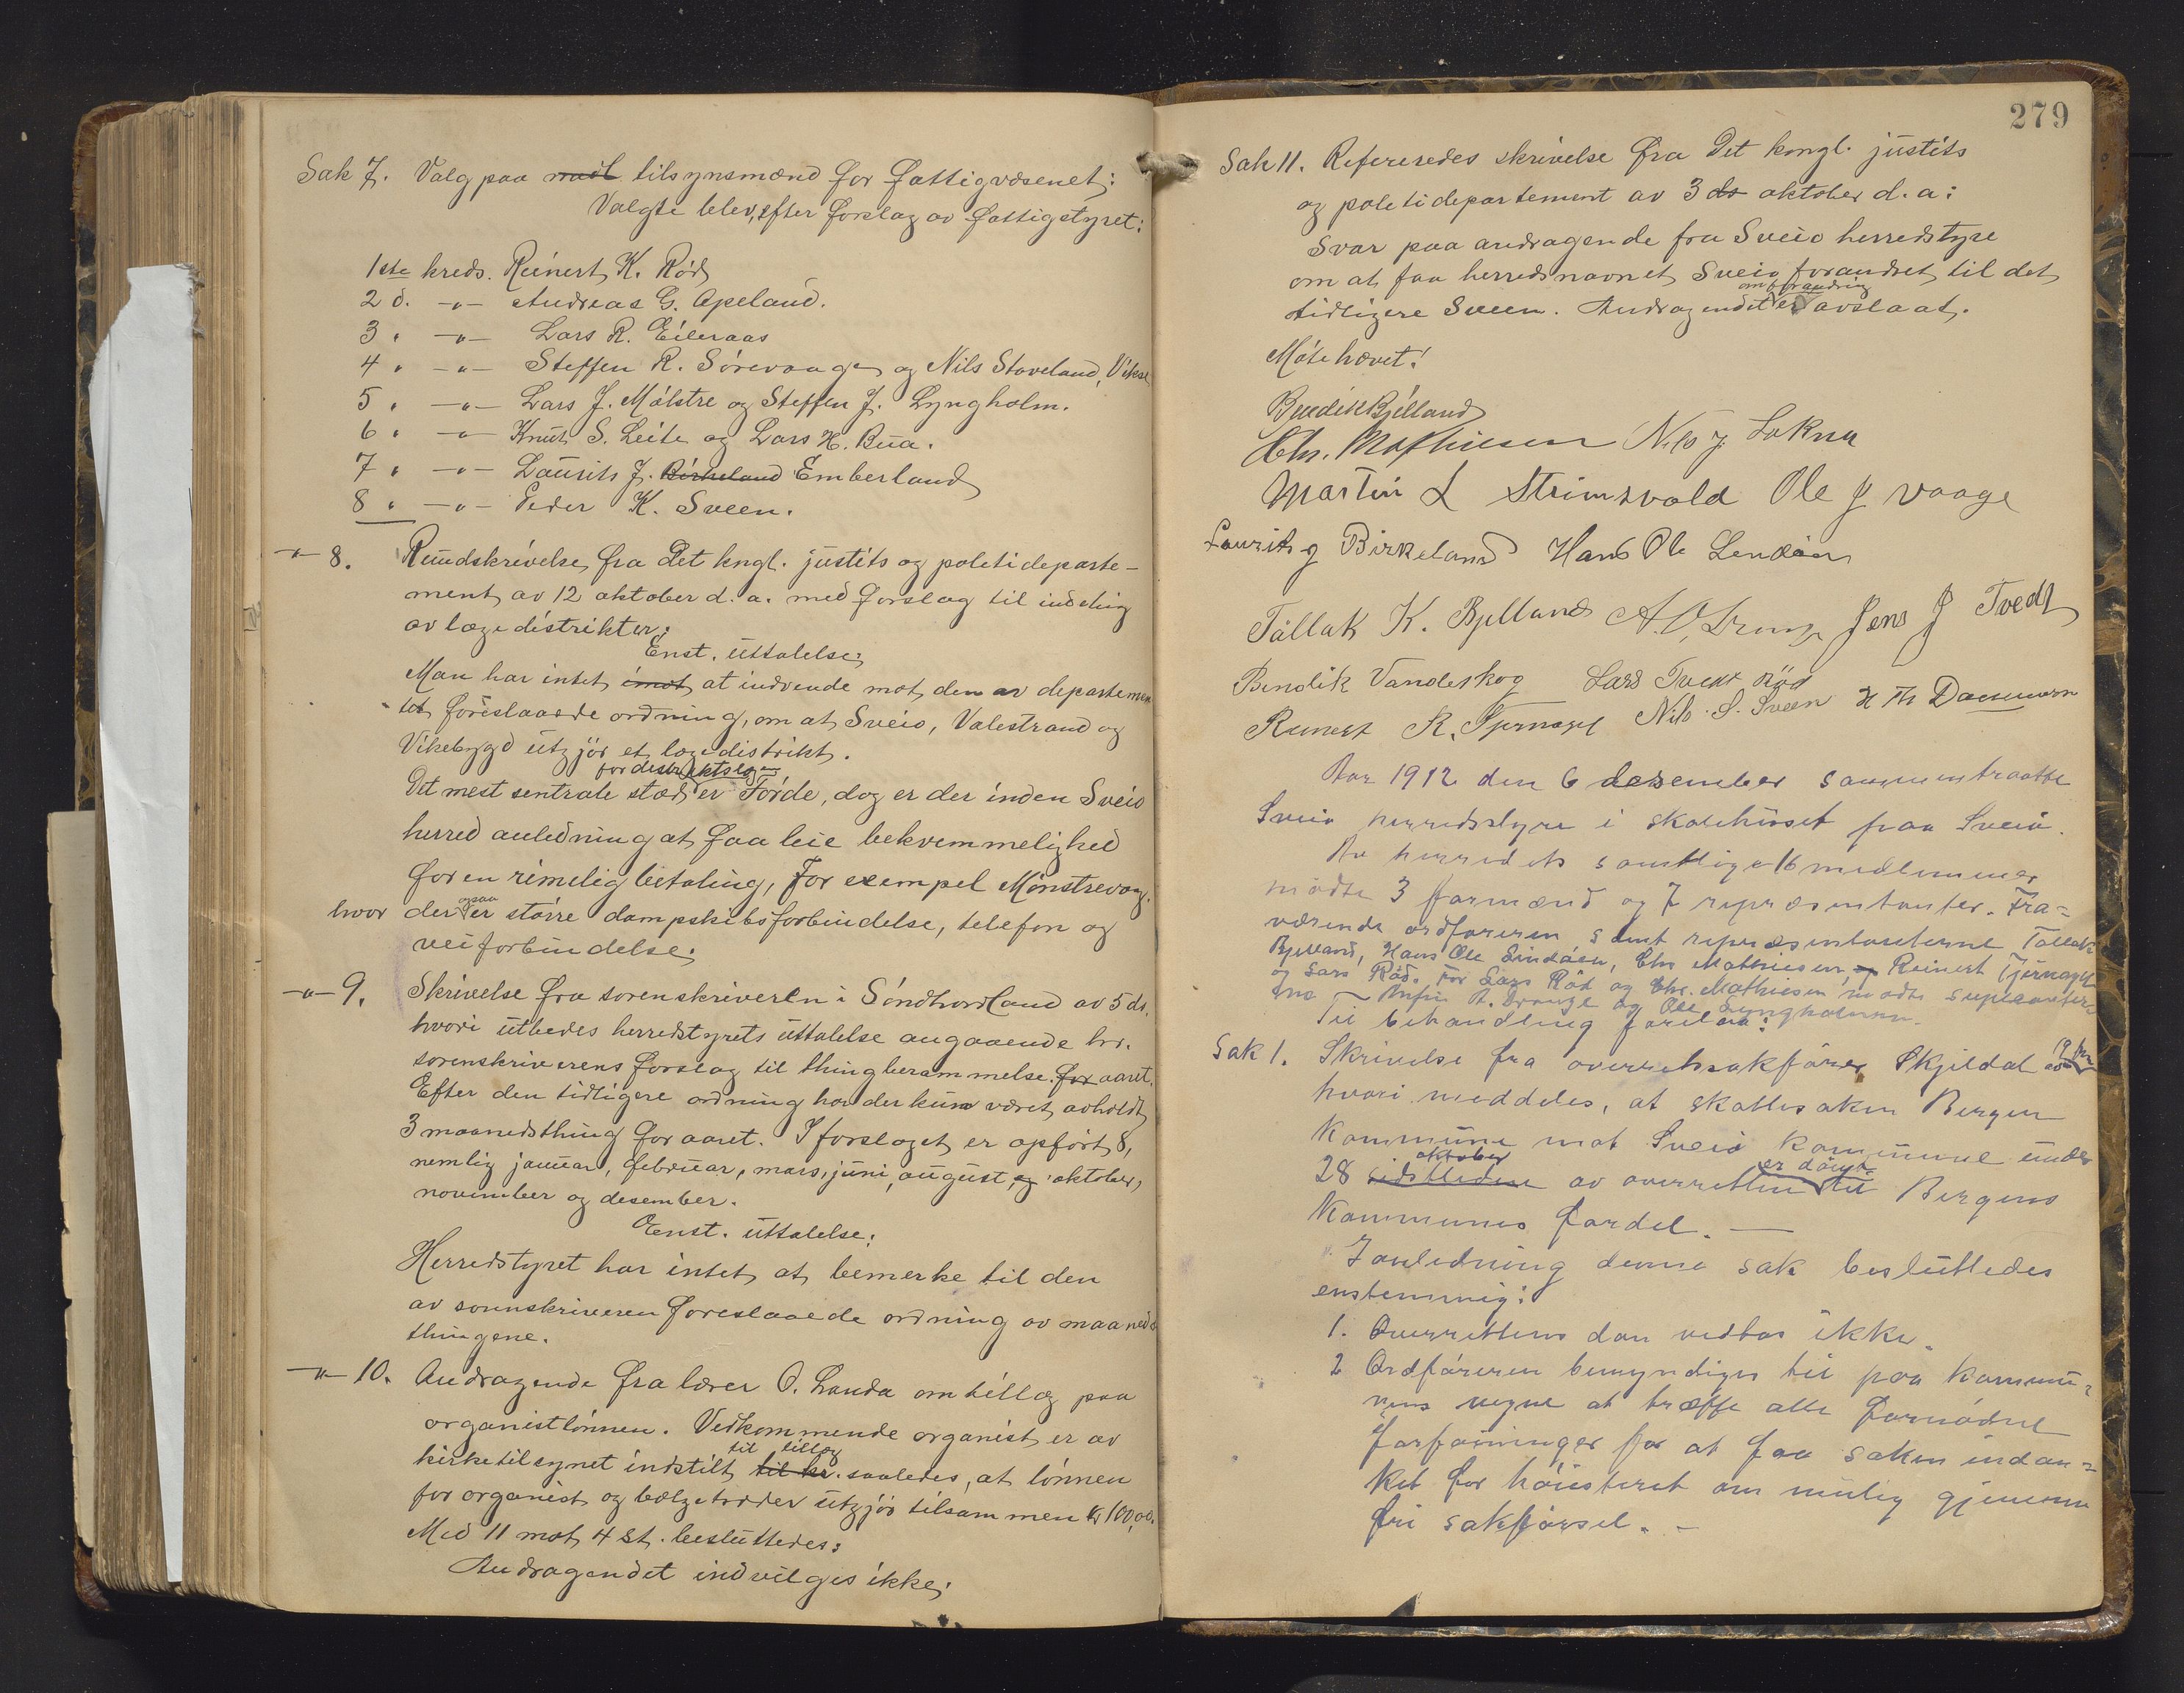 Sak 7. Valg paa tilsynsmænd for fattigvæsenet:
Valgte blev, efter forslag av fattigstyret:
1ste kreds. Reinert K. Rød
2 d. -"- Andreas G. Apeland.
3 " -"- Lars R. Eileraas
4 " -"- Steffen R. Sørevaage og Nils Staveland, Vikse
5 " -"- Lars J. Mølstre og Steffen J. Lyngholm.
6 " -"- Knut S. Leite og Lars H. Bua.
7 " -"- Laurits J. Birkeland Emberland
8 " -"- Peder K. Sveen.
-"- 8. Rundskrivelse fra det kngl. justits og politideparte-
ment av 12 oktober d. a. med forslag til inddeling
av lægedistrikter;
Enst. uttalelse:
Man har intet imot at indvende mot den av departemen
tet foreslaaede ordning, om at Sveio, Valestrand og
Vikebygd utgjør et lægedistrikt.
for distriktslægen
Det mest sentrale sted er Førde, dog er der inden Sveio
herred anledning at faa leie bekvemmelighed
for en rimelig betaling, for exempel Mønstrevaag.
ogsaa
hvor der er større dampskibsforbindelse, telefon og
veiforbindelse;
-"- 9. Skrivelse fra sorenskriveren i Søndhordland av 5 ds.
hvori utbedes herredstyrets uttalelse angaaende hr.
sorenskriverens forslag til thingberammelse for aaret.
Efter den tidligere ordning har der kun været avholdt
3 maanedsthing for aaret. I forslaget er opført 8,
nemlig januar, februar, mars, juni, august, og oktober,
november og desember.
Enst. uttalelse:
Herredstyret har intet at bemerke til den
av sorenskriveren foreslaaede ordning av maaneds
thingene.
-"- 10. Andragende fra lærer O. Landa om tillæg paa
organistlønnen. Vedkommende organist er av
til tillæg
kirketilsynet indstilt til kr. saaledes, at lønnen
for organist og bælgetræder utgjør tilsammen kr 100,00.
Med 11 mot 4 st. besluttedes:
Andragendet indvilges ikke;
279
Sak 11. Refereredes skrivelse fra Det kongl. justits
og politidepartement av 3 ds oktober d. a:
Svar paa andragende fra Sveio herredstyre
om at faa herredsnavnet Sveio forandret til det
om forandring
tidligere Sveen. Andragendet er avslaat.
Møte hævet!
Bendik Bjelland
Chr. Mathiesen Nils J. Lokna
Martin L Strømsvold Ole J Vaage
Laurits J Birkeland Hans Ole Lindøen
Tallak K. Bjelland A. O. Drange Jens J Tvedt
Bendik Vandeskog Lars Tveit Rød
Reinert K. Tjernagel Nils S. Sveen H Th
Aar 1912 den 6 desember sammentraatte
Sveio herredsstyre i skolehuset paa Sveio.
Av herredets samtlige 16 medlemmer
mødte 3 formænd og 7 repræsentanter. Fra=
værende ordføreren samt repræsentanterne Tallak
Bjelland, Hans Ole Lindøen, Chr Mathiesen, og Reinert Tjernagel
og Lars Rød. For Lars Rød og Chr. Mathiesen mødte suppleanter
ne A. Drange og Ole Lyngholmen.
Til behandling forelaa:
Sak 1. Skrivelse fra overretssakfører Skjeldal av 19 f.m.
hvori meddeles, at skattesaken Bergen
Kommune mot Sveio Kommune under
oktober er dømt
28 sidstleden av overretten til Bergens
Kommunes fordel. —
I anledning denne sak besluttedes
enstemmig:
1. Overrettens dom vedtas ikke.
2 Ordføreren bemyndiges til paa kommu=
nens vegne at træffe alle fornødne
forføininger for at faa saken indan=
ket for høiesteret om mulig gjennem
fri sakførsel. —